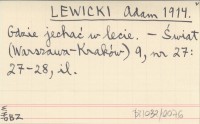 LEWICKI Adam 1914.
Gdzie jechać w lecie. – Świat
(Warszawa-Kraków) 9, nr 27:
27-28, il.
GBZ